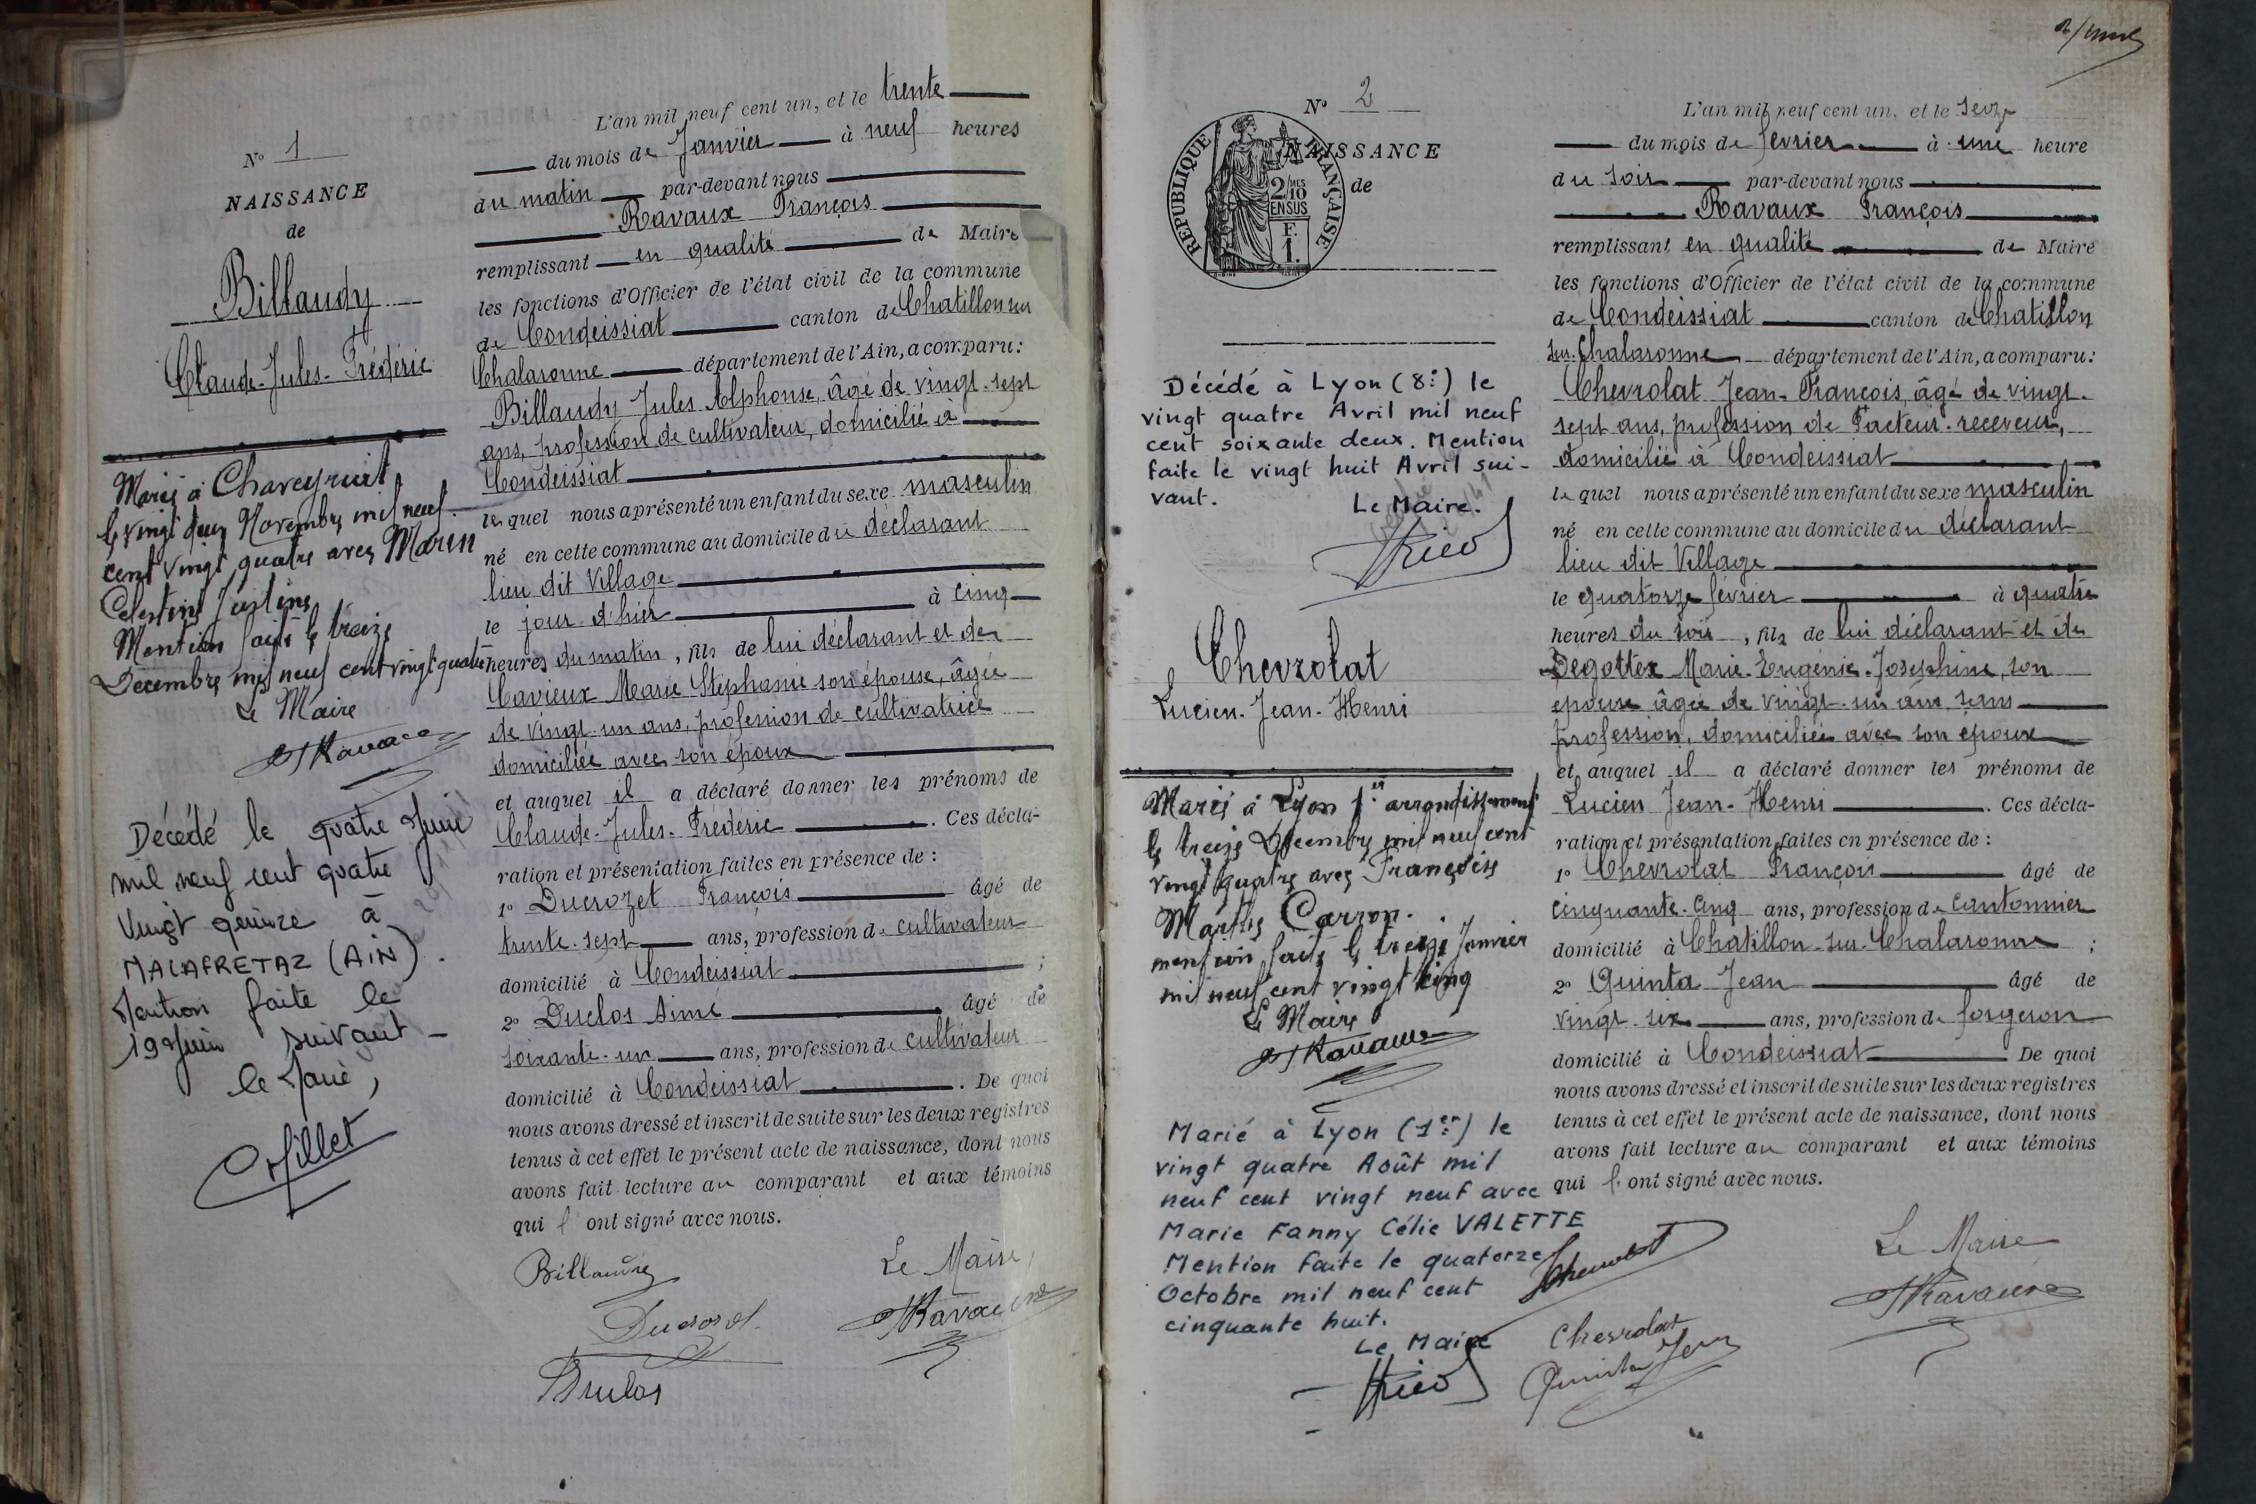 N° 1
NAISSANCE
de
Billaudy
Claude-Jules-Frédéric
Marié à Chaveyriat
le vingt deux Novembre mil neuf
cent vingt quatre avec Morin
Celestine Justine
Mention faite le treize
Décembre mil neuf cent vingt quatre
Le Maire
Décédé le quatre Juin
mil neuf cent quatre
vingt quinze à
MALAFRETAZ (AIN).
Mention faite le
19 Juin suivant -
le Maire,
L'an mil neuf cent un, et le trente
du mois de Janvier à neuf heures
du matin par-devant nous
Ravaux François
remplissant en qualité de Maire
les fonctions d'Officier de l'état civil de la commune
de Condeissiat canton de Chatillon sur
Chalaronne département de l'Ain, a comparu:
Billaudy Jules Alphonse, âgé de vingt-sept
ans, profession de cultivateur, domicilié à
Condeissiat
lequel nous a présenté un enfant du sexe masculin
né en cette commune au domicile du déclarant
lieu dit Village
le jour d'hier à cinq
heures du matin, fils de lui déclarant et de
Cavieux Marie Stéphanie son épouse, âgée
de vingt-un ans, profession de cultivatrice
domiciliée avec son époux
et auquel il a déclaré donner les prénoms de
Claude-Jules-Frédéric . Ces décla-
ration et présentation faites en présence de :
1° Ducrozet François âgé de
trente-sept ans, profession de cultivateur
domicilié à Condeissiat ;
2° Duclos Aimé âgé de
soixante-un ans, profession de cultivateur
domicilié à Condeissiat . De quoi
nous avons dressé et inscrit de suite sur les deux registres
tenus à cet effet le présent acte de naissance, dont nous
avons fait lecture au comparant et aux témoins
qui l' ont signé avec nous.
Billaudy
Le Maire,
Ducrozet
Ravaux
Duclos
N° 2
NAISSANCE
de
RÉPUBLIQUE FRANÇAISE
2/10 MES
EN SUS
F.
1.
Décédé à Lyon (8e) le
vingt quatre Avril mil neuf
cent soixante deux. Mention
faite le vingt huit Avril sui-
vant.
Le Maire.
Chevrolat
Lucien-Jean-Henri
Marié à Lyon 1er arrondissement
le treize Décembre mil neuf cent
vingt quatre avec Françoise
Marthe Carron.
mention faite le treize Janvier
mil neuf cent vingt cinq
Le Maire
Ravaux
Marié à Lyon (1er) le
vingt quatre Août mil
neuf cent vingt neuf avec
Marie Fanny Célie VALETTE
Mention faite le quatorze
Octobre mil neuf cent
cinquante huit.
Le Maire
L'an mil neuf cent un, et le seize
du mois de février à une heure
du soir par-devant nous
Ravaux François
remplissant en qualité de Maire
les fonctions d'Officier de l'état civil de la commune
de Condeissiat canton de Chatillon
sur-Chalaronne département de l'Ain, a comparu:
Chevrolat Jean-François, âgé de vingt-
sept ans, profession de Facteur-receveur,
domicilié à Condeissiat
lequel nous a présenté un enfant du sexe masculin
né en cette commune au domicile du déclarant
lieu dit Village
le quatorze février à quatre
heures du soir, fils de lui déclarant et de
Degottex Marie-Eugénie-Josephine, son
épouse âgée de vingt-un ans sans
profession, domiciliée avec son époux
et auquel il a déclaré donner les prénoms de
Lucien Jean-Henri . Ces décla-
ration et présentation faites en présence de :
1° Chevrolat François âgé de
cinquante-cinq ans, profession de cantonnier
domicilié à Chatillon-sur-Chalaronne ;
2° Quinta Jean âgé de
vingt-six ans, profession de forgeron
domicilié à Condeissiat De quoi
nous avons dressé et inscrit de suite sur les deux registres
tenus à cet effet le présent acte de naissance, dont nous
avons fait lecture au comparant et aux témoins
qui l' ont signé avec nous.
Chevrolat
Le Maire
Ravaux
Chevrolat
Quinta Jean